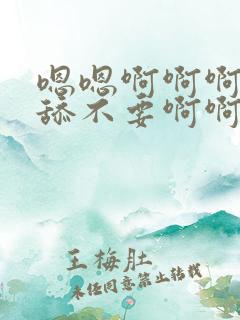 嗯嗯啊啊啊
舔不要啊啊
王梅肚
未经同意禁止转载